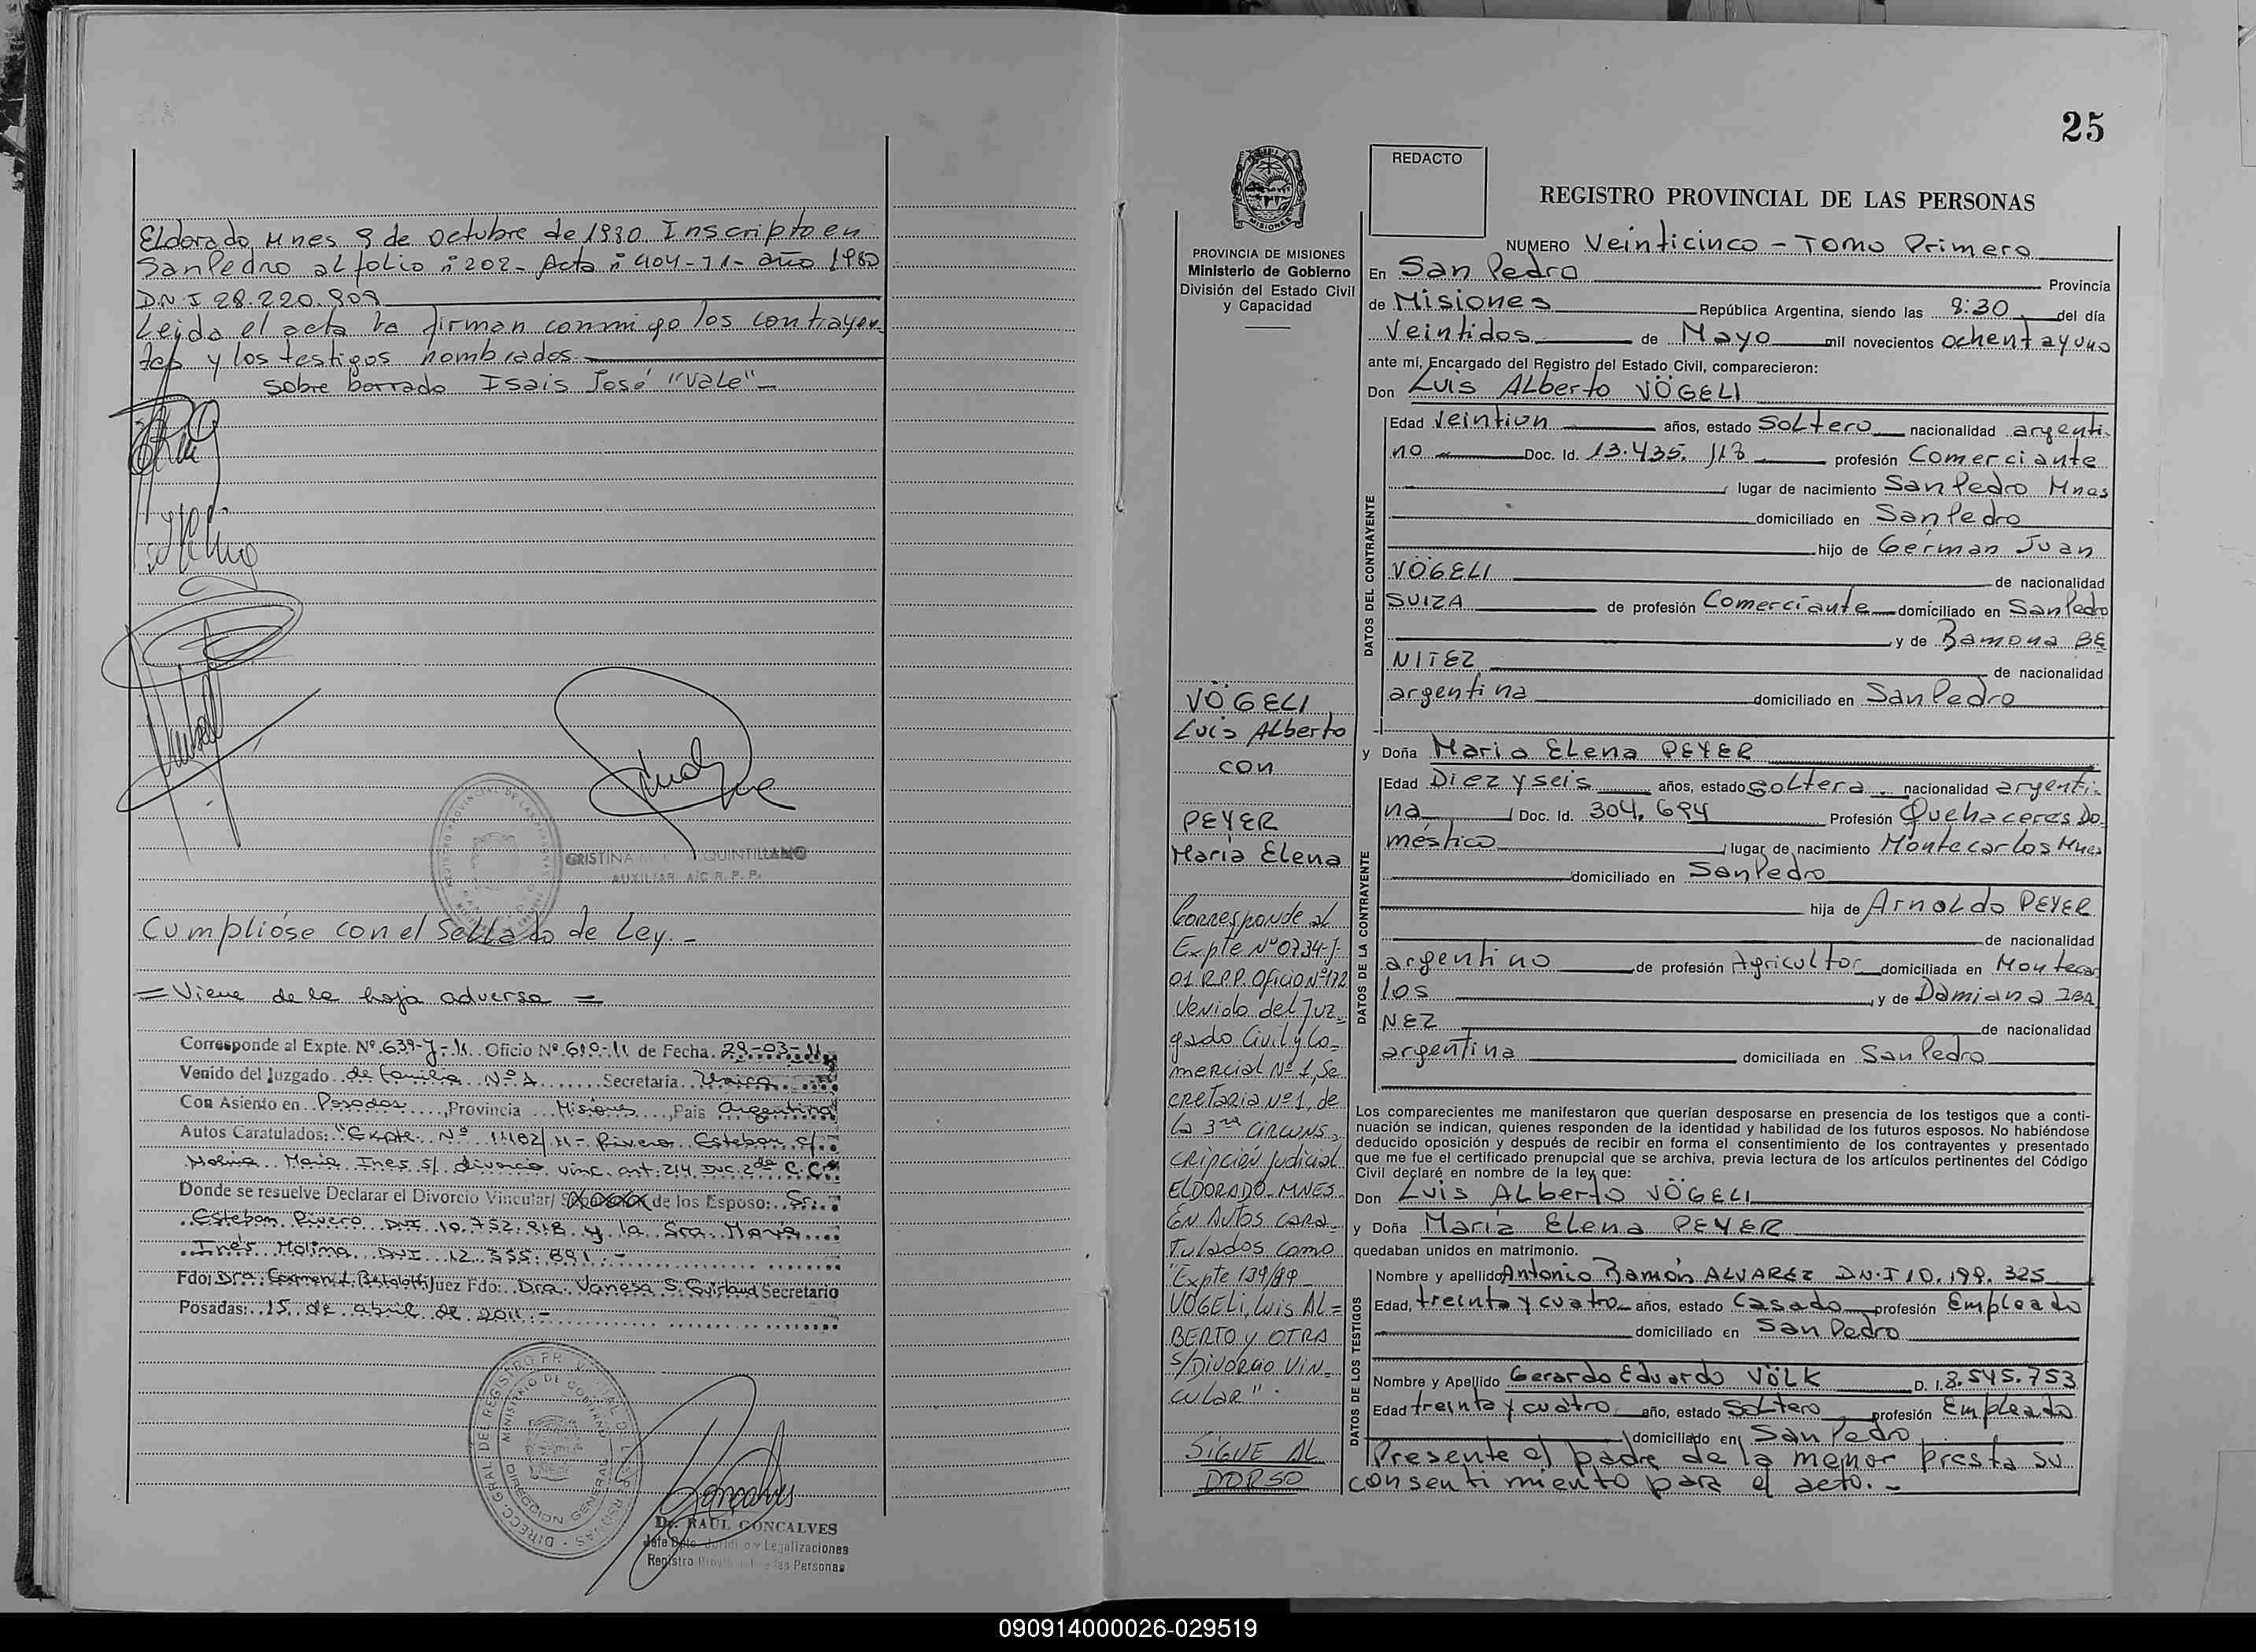 Eldorado, Mnes 9 de octubre de 1980 Inscripto en
San Pedro al folio n° 202- Acta n° 404-T1- año 1980
D.N.I 28.220.809
Leida el acta la firman conmigo los contrayen
tes y los testigos nombrados
Sobre borrado Isais José "Vale"-
CRISTINA QUINTILLANO
AUXILIAR A/C R. P. P.
Cumplióse con el Sellado de Ley.-
= Viene de la hoja adversa =
Corresponde al Expte. Nº 639-J-11 Oficio Nº 610-11 de Fecha 29-03-11
Venido del Juzgado de familia Nº 1 Secretaría Unica
Con Asiento en Posadas, Provincia Misiones, Pais Argentina
Autos Caratulados: "Expte. Nº 1102/11- Rivero Esteban c/
Molina Maria Ines s/ divorcio vinc. art. 214 inc. 2do C.C."
Donde se resuelve Declarar el Divorcio Vincular/ de los Esposo: Sr.
Esteban Rivero DNI 10.752.818 y la Sra. Maria
Inés Molina DNI 12.355.891.-
Fdo: Dra. Carmen Juez Fdo: Dra. Vanesa S. Secretario
Posadas: 15 de abril de 2011.-
DIRECC. GRAL. DE REGISTRO PROVINCIAL DE LAS PERSONAS
MINISTERIO DE GOBIERNO
DIRECCION GENERAL
Goncalves
Dr. RAUL GONCALVES
Jefe Dpto. Juridico y Legalizaciones
Registro Provincial de las Personas
25
MISIONES
PROVINCIA DE MISIONES
Ministerio de Gobierno
División del Estado Civil
y Capacidad
VÖGELI
Luis Alberto
con
PEYER
María Elena
Corresponde al
Expte Nº 0734-J-
01 R.P.P. Oficio Nº 172
Venido del Juz=
gado Civil y Co=
mercial Nº 1, Se
cretaria Nº 1, de
la 3ra Circuns=
cripción Judicial
ELDORADO- MNES.
En Autos cara=
tulados como
"Expte 139/89
VÖGELI, Luis AL=
BERTO y OTRA
S/Divorcio Vin=
cular".
SIGUE AL
DORSO
REDACTO
REGISTRO PROVINCIAL DE LAS PERSONAS
NUMERO Veinticinco - Tomo Primero
En San Pedro Provincia
de Misiones República Argentina, siendo las 8:30 del día
Veintidos de Mayo mil novecientos ochenta y uno
ante mí, Encargado del Registro del Estado Civil, comparecieron:
Don Luis Alberto VÖGELI
DATOS DEL CONTRAYENTE
Edad Veintiun años, estado Soltero nacionalidad argenti-
no Doc. Id. 13.435.113 profesión Comerciante
lugar de nacimiento San Pedro Mnes
domiciliado en San Pedro
hijo de Gérman Juan
VÖGELI de nacionalidad
SUIZA de profesión Comerciante domiciliado en San Pedro
y de Ramona BE
NITEZ de nacionalidad
argentina domiciliado en San Pedro
y Doña Maria Elena PEYER
DATOS DE LA CONTRAYENTE
Edad Diez y seis años, estado soltera nacionalidad argenti-
na Doc. Id. 304.694 Profesión Quehaceres Do
méstico lugar de nacimiento Montecarlos Mnes
domiciliado en San Pedro
hija de Arnoldo PEYER
de nacionalidad
argentino de profesión Agricultor domiciliada en Montecar
los y de Damiana IBA
NEZ de nacionalidad
argentina domiciliada en San Pedro
Los comparecientes me manifestaron que querían desposarse en presencia de los testigos que a conti-
nuación se indican, quienes responden de la identidad y habilidad de los futuros esposos. No habiéndose
deducido oposición y después de recibir en forma el consentimiento de los contrayentes y presentado
que me fue el certificado prenupcial que se archiva, previa lectura de los artículos pertinentes del Código
Civil declaré en nombre de la ley que:
Don Luis Alberto VÖGELI
y Doña María Elena PEYER
quedaban unidos en matrimonio.
DATOS DE LOS TESTIGOS
Nombre y apellido Antonio Ramón ALVAREZ D.N.I 10.199.325
Edad, treinta y cuatro años, estado Casado profesión Empleado
domiciliado en San Pedro
Nombre y Apellido Gerardo Eduardo VÖLK D. I. 8.545.753
Edad treinta y cuatro año, estado Soltero profesión Empleado
domiciliado en San Pedro
Presente el padre de la menor presta su
consentimiento para el acto.-
090914000026-029519